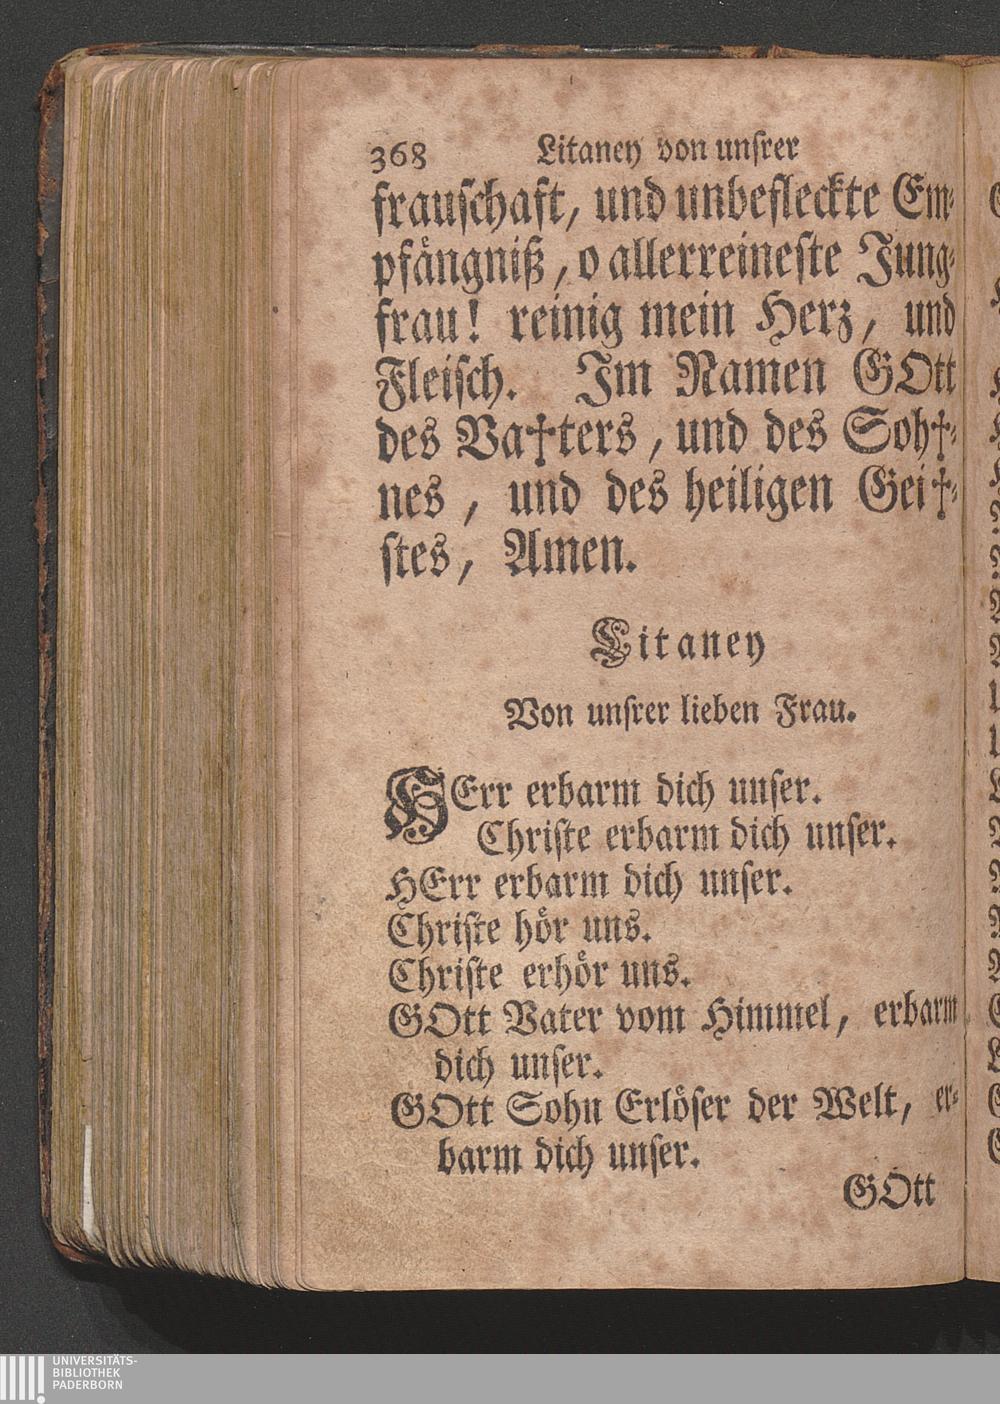 368 Litaney von unſrer
frauſchaft, und unbefleckte Em-
pfängniß, o allerreineſte Jung-
frau! reinig mein Herz, und
Fleiſch. Im Namen GOtt
des Va†ters, und des Soh†-
nes, und des heiligen Gei†-
ſtes, Amen.
Litaney
Von unſrer lieben Frau.
HErr erbarm dich unſer.
Chriſte erbarm dich unſer.
HErr erbarm dich unſer.
Chriſte hör uns.
Chriſte erhör uns.
GOtt Vater vom Himmel, erbarm
dich unſer.
GOtt Sohn Erlöſer der Welt, er-
barm dich unſer.
GOtt
UNIVERSITÄTS-
BIBLIOTHEK
PADERBORN